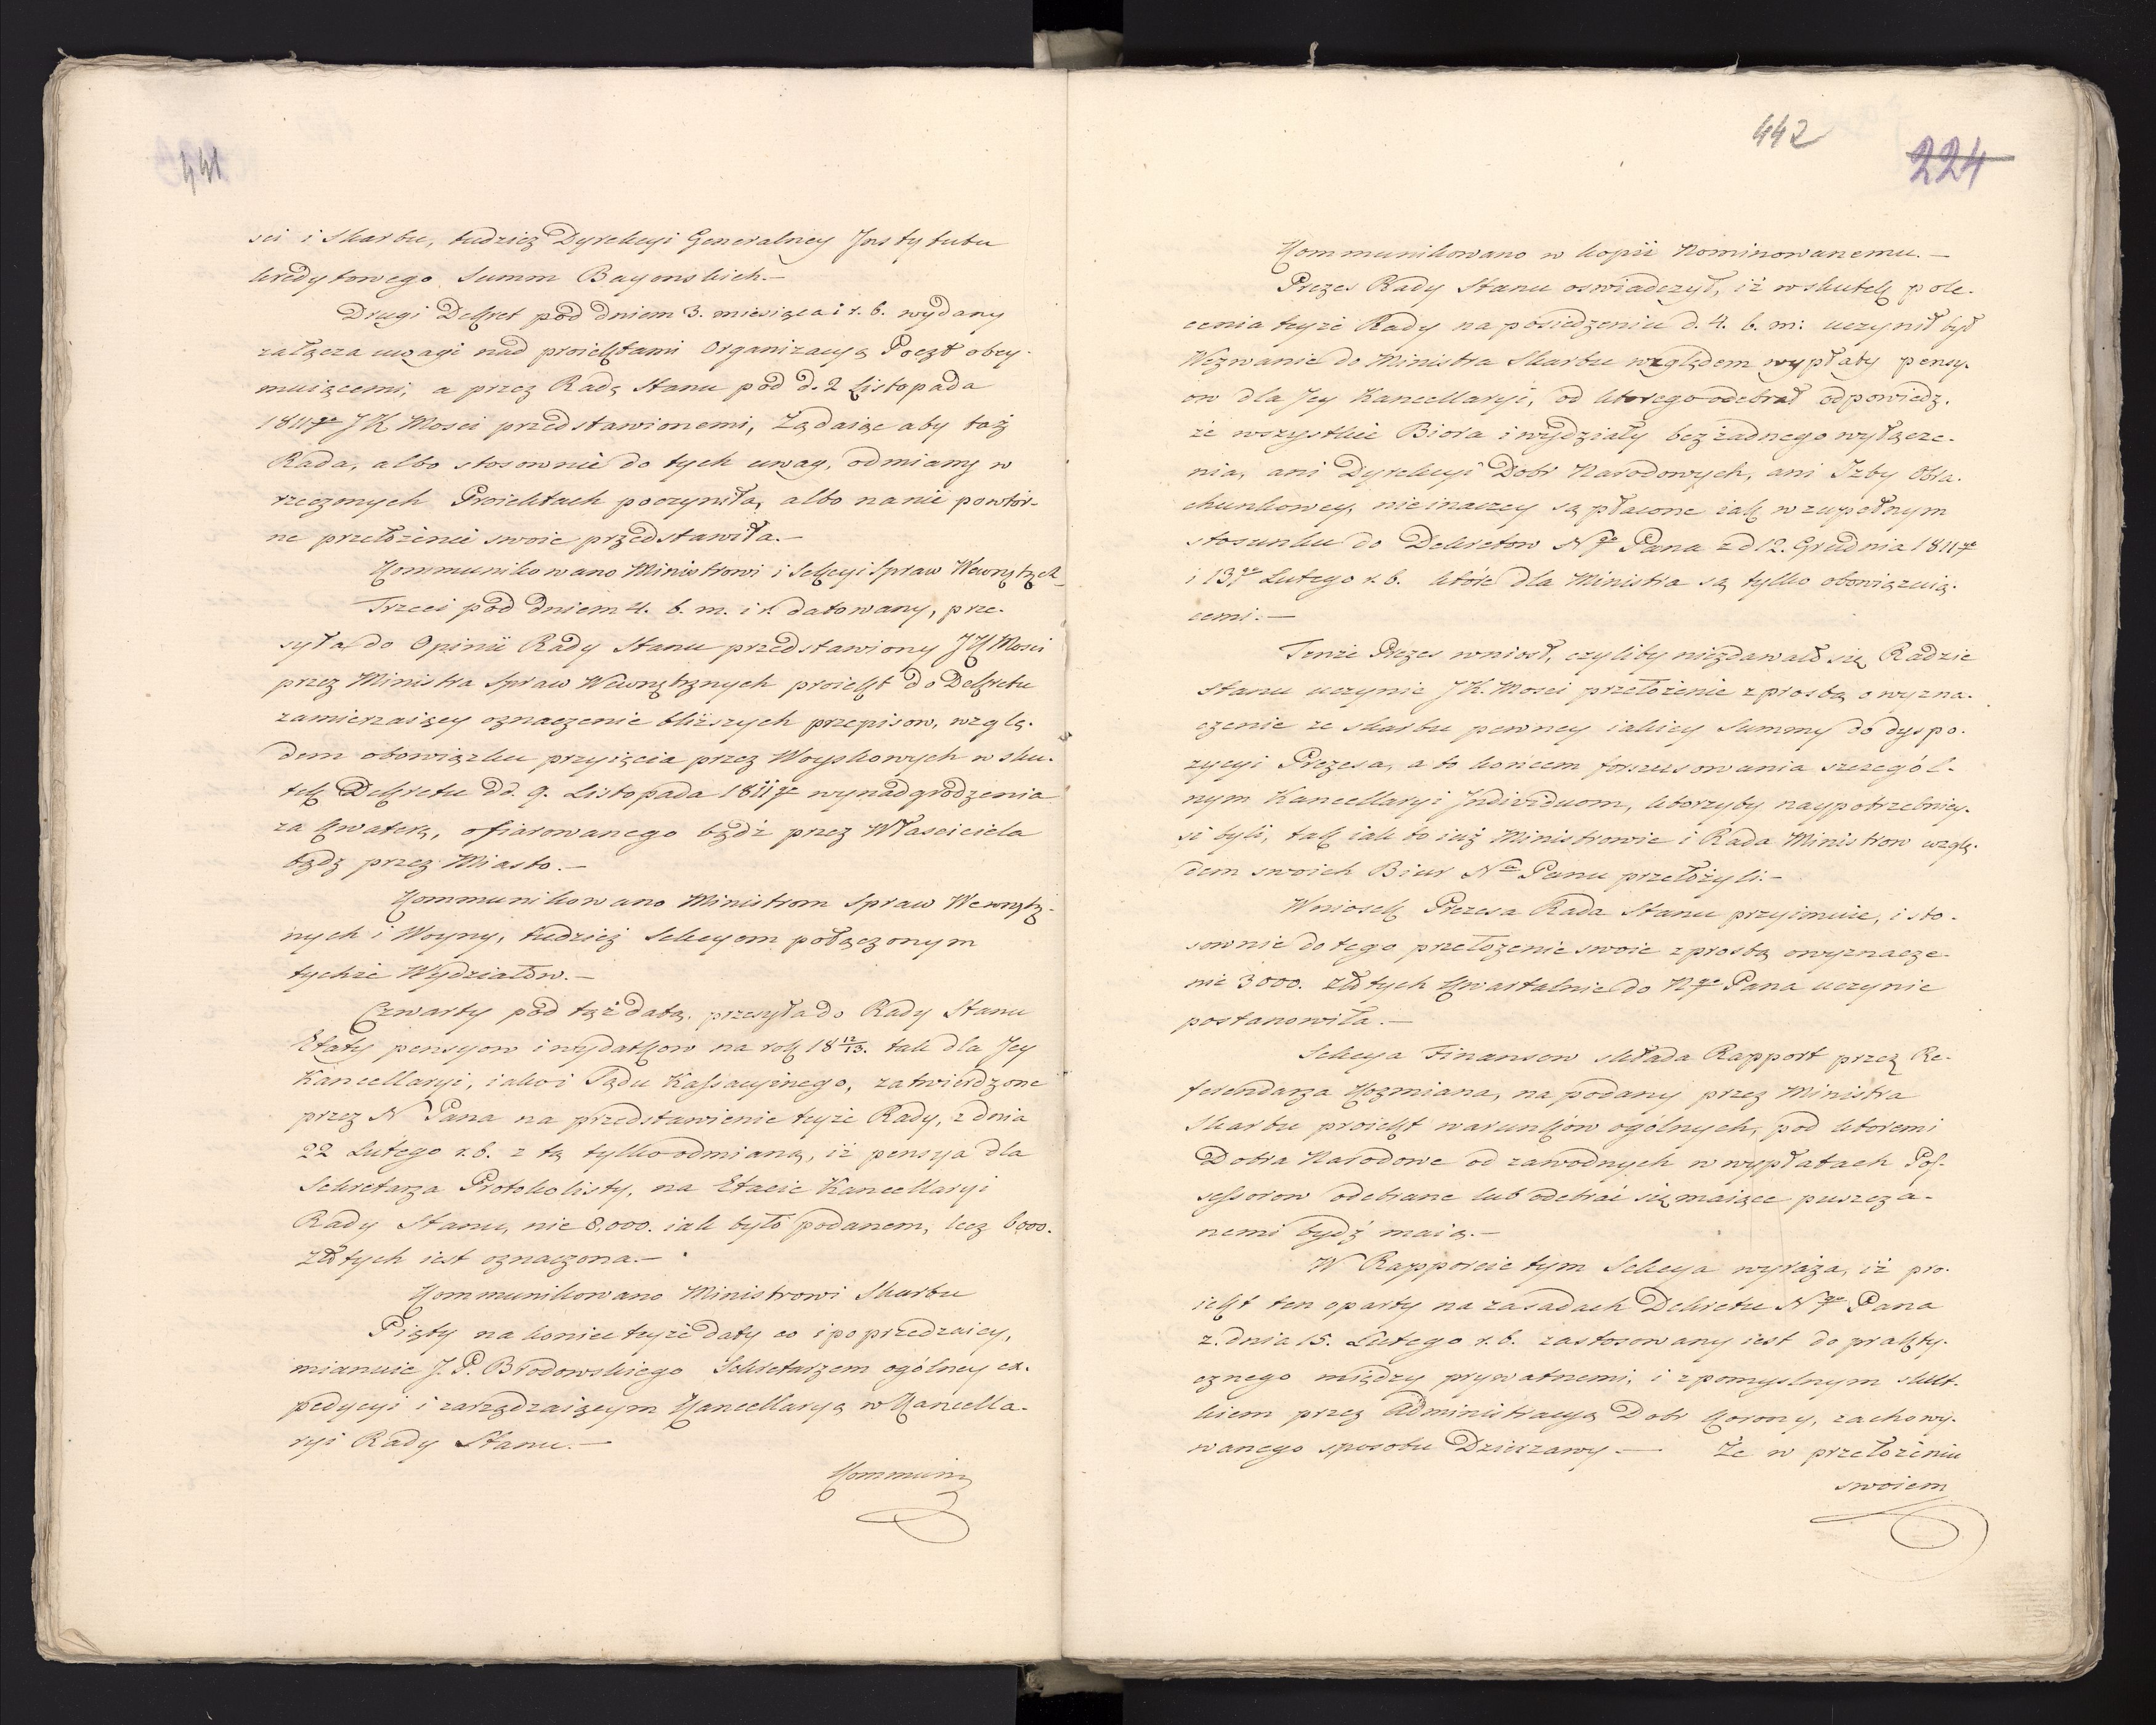 441
sci i Skarbu, tudzież Dyrekcyi Generalney Jnstytutu
kredytowego Summ Bayonskich.—
Drugi Dekret pod dniem 3. miesiąca i r. b. wydany
załącza uwagi nad proiektami Organizacyą Poczt obey-
muiącemi, a przez Radę Stanu pod d. 2 Listopada
1811go J K Mosci przedstawionemi, Żądaiąc aby taż
Rada, albo stosownie do tych uwag, odmiany w
rzeczonych Proiektach poczyniła, albo na nie powtór-
ne przełożenie swoie przedstawiła.—
Kommunikowano Ministrowi i Sekcyi Spraw Wewnętrzch
Trzeci pod dniem 4. b. m. i r. datowany, prze-
syła do Opinii Rady Stanu przedstawiony J K Mosci
przez Ministra Spraw Wewnętrznych proiekt do Dekretu
zamierzaiący oznaczenie bliższych przepisow, wzglę-
dem obowiązku przyięcia przez Woyskowych w sku-
tek Dekretu dd. 9. Listopada 1811go wynadgrodzenia
za kwaterę, ofiarowanego bądź przez Własciciela
bądz przez Miasto.—
Kommunikowano Ministrom Spraw Wewnętrz-
nych i Woyny, tudzież Sekcyom połączonym
tychże Wydziałow.—
Czwarty pod tąż datą, przesyła do Rady Stanu
Etaty pensyow i wydatkow na rok 18 12/13. tak dla Jey
Kancellaryi, iako i Sądu Kassacyinego, zatwierdzone
przez N Pana na przedstawienie teyże Rady, z dnia
22 Lutego r. b. z tą tylko odmianą, iż pensya dla
Sekretarza Protokolisty, na Etacie Kancellaryi
Rady Stanu, nie 8,000. iak było podanem, lecz 6000.
Złłtych iest oznaczona.—
Kommunikowano Ministrowi Skarbu
Piąty na koniec teyże daty co i poprzedzaiący,
mianuie J. P. Brodowskiego Sekretarzem ogólney ex-
pedycyi i zarządzaiącym Kancellaryą w Kancella-
ryi Rady Stanu.—
Kommuni
442
224
Kommunikowano w kopii Nominowanemu.—
Prezes Rady Stanu oswiadczył, iż w skutek pole-
cenia teyże Rady na posiedzeniu d. 4. b. m: uczynił był
Wezwanie do Ministra Skarbu względem wypłaty pensy-
ow dla Jey Kancellaryi, od ktorego odebrał odpowiedz,
że wszystkie Biora i wydziały bez żadnego wyłącze-
nia, ani Dyrekcyi Dobr Narodowych, ani Izby Obra-
chunkowey, nieinaczey są płacone iak w zupełnym
stosunku do Dekretow Ngo Pana z d 12. Grudnia 1811go
i 13go Lutego r. b. które dla Ministra są tylko obowiązuią-
cemi.—
Tenże Prezes wniosł, czyliby niezdawało się Radzie
Stanu uczynic J K. Mosci przełożenie z prosbą o wyzna-
czenie ze skarbu pewney iakiey Summy do dyspo-
zycyi Prezesa, a to końcem forszusowania szczegól-
nym Kancellaryi Jndividuom, ktorzyby naypotrzebniey-
si byli, tak iak to iuż Ministrowie i Rada Ministrow wzglę-
dem swoich Biur Nu Panu przełożyli.—
Wniosek Prezesa Rada Stanu przyimuie, i sto-
sownie do tego przełożenie swoie z prosbą o wyznacze-
nie 3000. złłtych kwartalnie do Ngo Pana uczynic
postanowiła.—
Sekcya Finansow składa Rapport przez Re-
ferendarza Kozmiana, na podany przez Ministra
Skarbu proiekt warunków ogólnych, pod ktoremi
Dobra Narodowe od zawodnych w wypłatach Pos-
sessorow odebrane lub odebrać się maiące puszcza-
nemi bydź maią.—
W Rapporcie tym Sekcya wyraża, iż pro-
iekt ten oparty na zasadach Dekretu Ngo Pana
z. dnia 15. Lutego r. b. zastosowany iest do prakty-
cznego między prywatnemi, i z pomyslnym skut-
kiem przez Administracyą Dobr Korony, zachowy-
wanego sposobu Dzierzawy.— Że w przełożeniu
swoiem